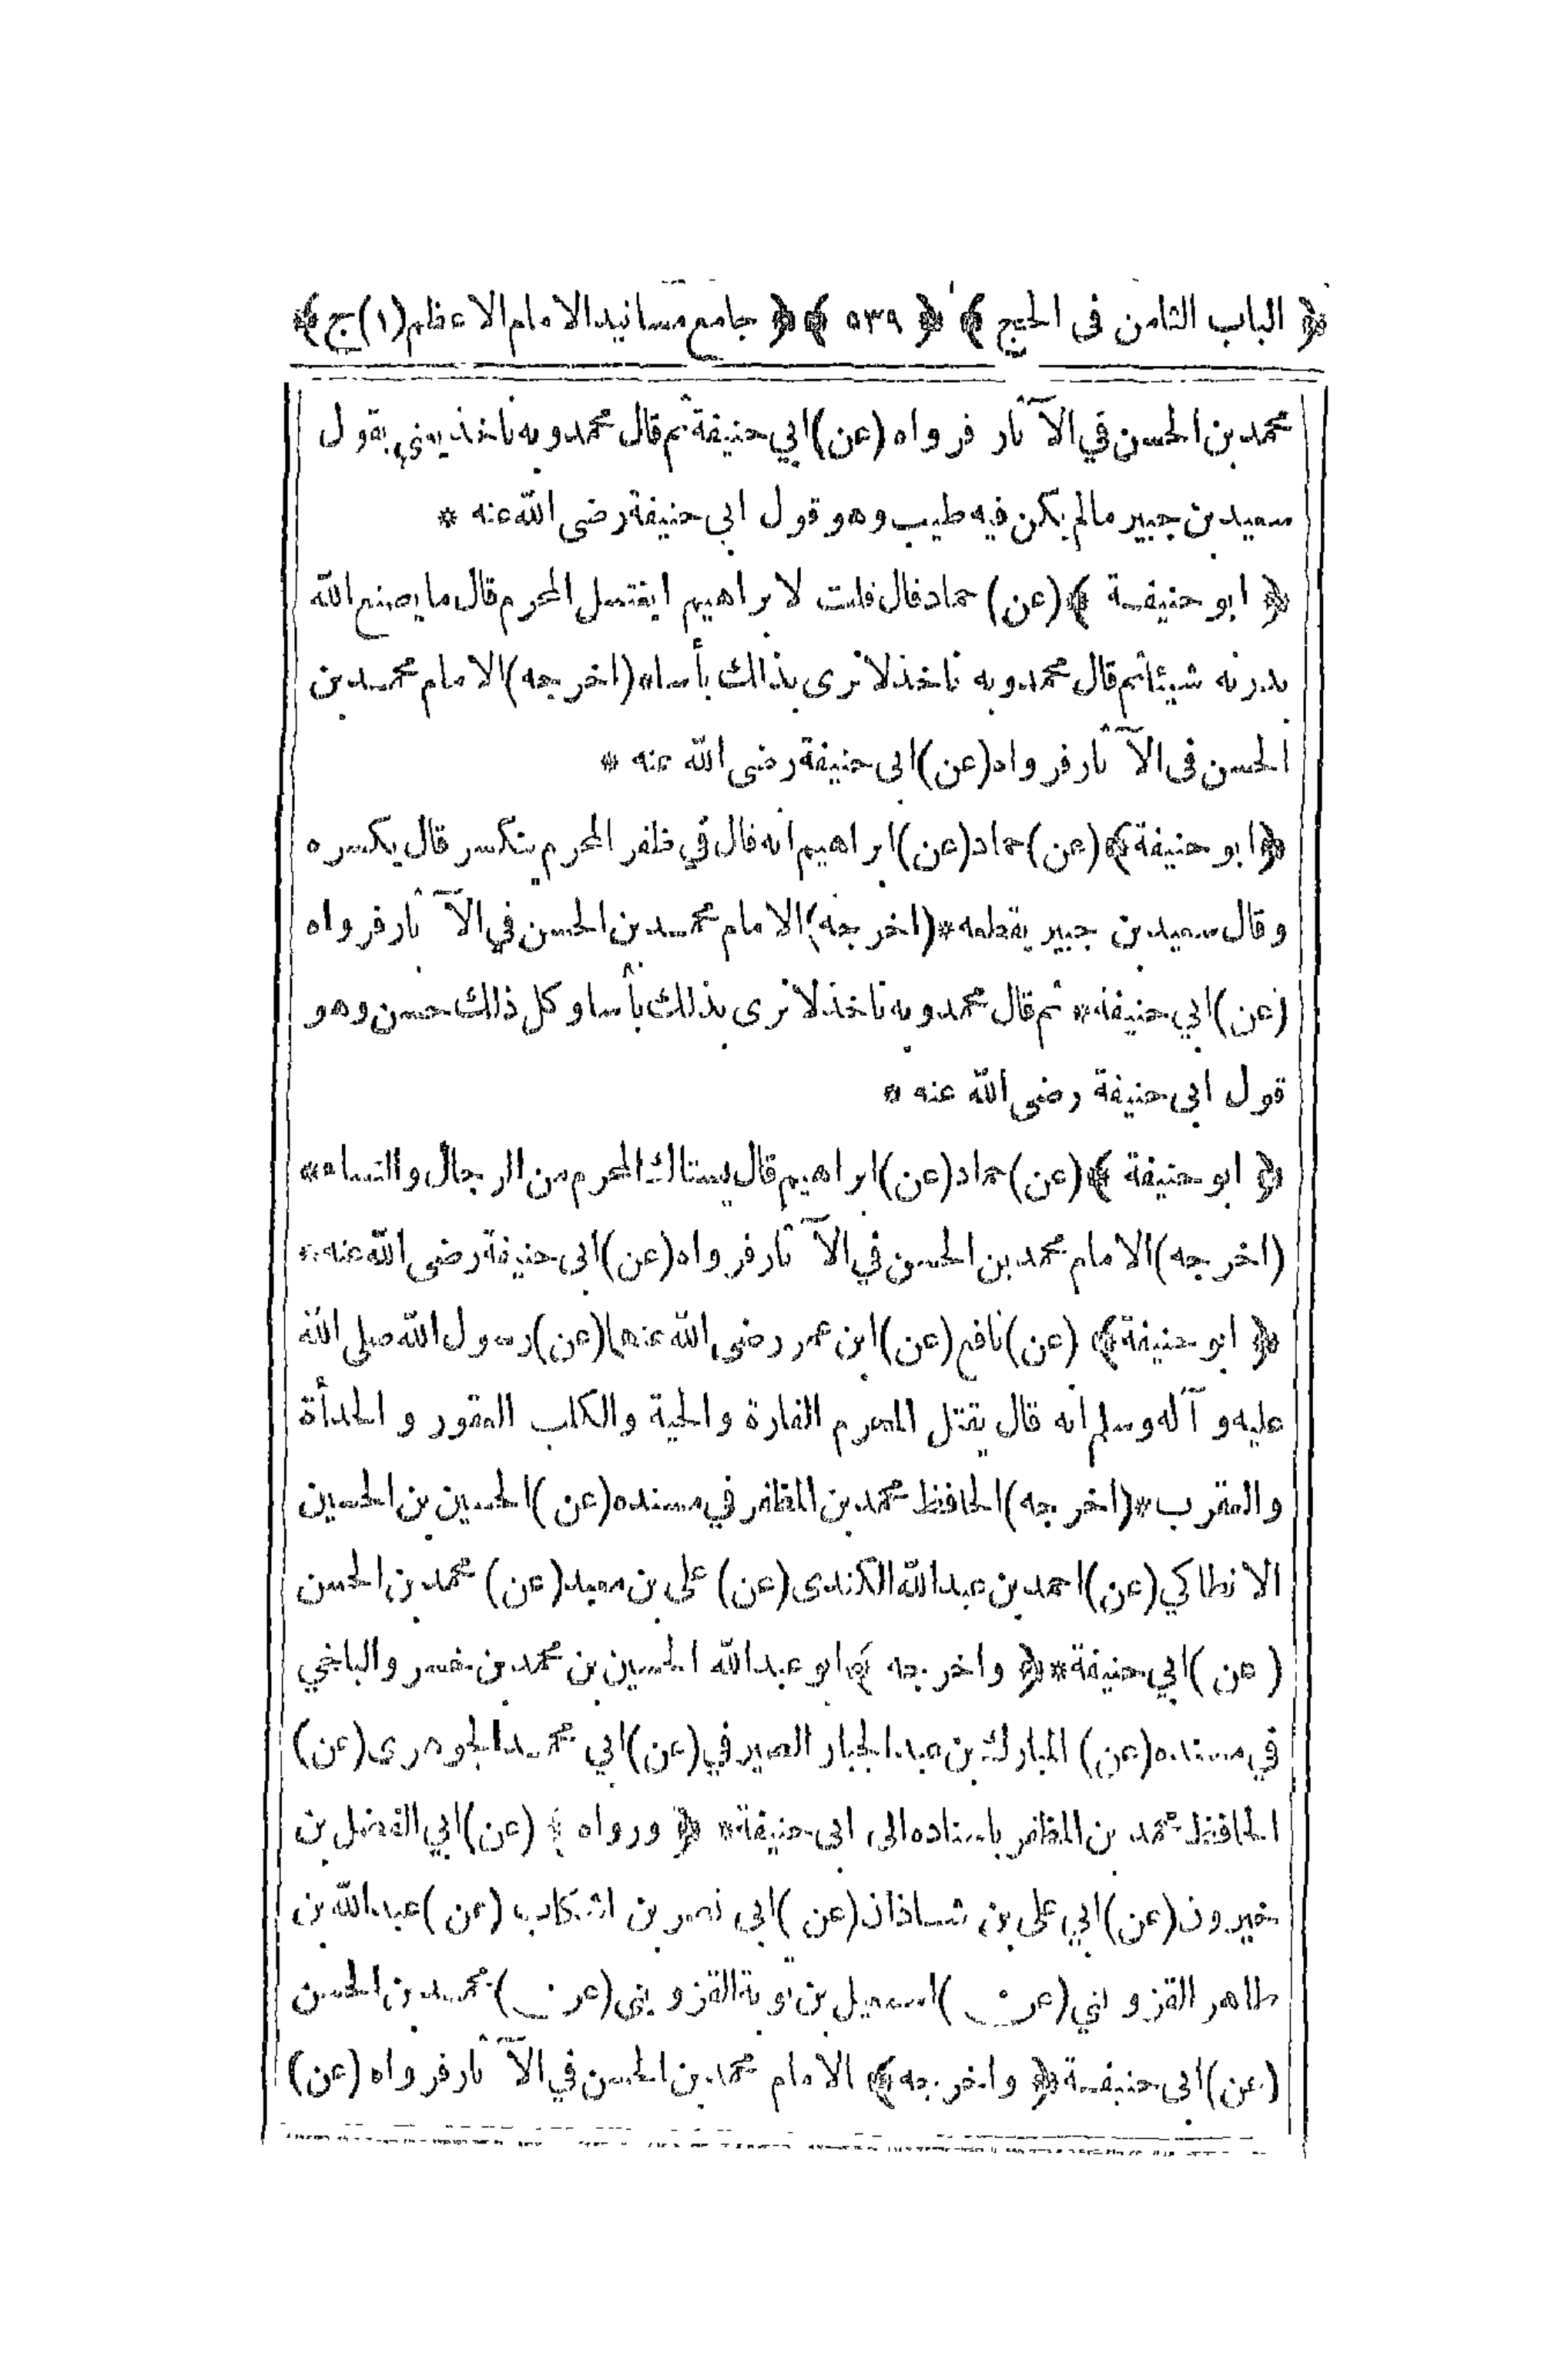 ﴿ الباب الثامن فى الحج ﴾ ﴿ ٥٣٩ ﴾ ﴿ جامع مسانيد الامام الاعظم (١) ج ﴾
محمد بن الحسن في الآثار فرواه (عن) ابي حنيفة ثم قال محمد وبه ناخذ يعني بقول
سعيد بن جبير مالم يكن فيه طيب وهو قول ابى حنيفة رضى الله عنه *
﴿ ابو حنيفة ﴾ (عن) حماد قال قلت لابراهيم ايغتسل المحرم قال ما يصنع الله
بدرنه شيئا ثم قال محمد وبه ناخذ لا نرى بذالك بأسا* (اخرجه) الامام محمد بن
الحسن فى الآثار فرواه (عن) ابى حنيفة رضى الله عنه *
﴿ ابو حنيفة ﴾ (عن) حماد (عن) ابراهيم انه قال في ظفر المحرم ينكسر قال يكسره
وقال سعيد بن جبير يقطعه * (اخرجه) الامام محمد بن الحسن في الآثار فرواه
(عن) ابي حنيفة * ثم قال محمد وبه ناخذ لا نرى بذلك بأسا وكل ذلك حسن وهو
قول ابى حنيفة رضى الله عنه *
﴿ ابو حنيفة ﴾ (عن) حماد (عن) ابراهيم قال يستاك المحرم من الرجال والنساء *
(اخرجه) الامام محمد بن الحسن في الآثار فرواه (عن) ابى حنيفة رضى الله عنه *
﴿ ابو حنيفة ﴾ (عن) نافع (عن) ابن عمر رضى الله عنهما (عن) رسول الله صلى الله
عليه وآله وسلم انه قال يقتل المحرم الفارة والحية والكلب العقور و الحدأة
والعقرب * (اخرجه) الحافظ محمد بن المظفر في مسنده (عن) الحسين بن الحسين
الانطاكي (عن) احمد بن عبد الله الكندى (عن) على بن معبد (عن) محمد بن الحسن
(عن) ابي حنيفة * ﴿ واخرجه ﴾ ابو عبد الله الحسين بن محمد بن خسرو البلخي
في مسنده (عن) المبارك بن عبد الجبار الصير في (عن) ابي محمد الجوهرى (عن)
الحافظ محمد بن المظفر باسناده الى ابى حنيفة * ﴿ ورواه ﴾ (عن) ابي الفضل بن
خيرون (عن) ابي على بن شاذان (عن) ابى نصر بن اشكاب (عن) عبد الله بن
طاهر القزويني (عن) اسمعيل بن توبة القزوينى (عن) محمد بن الحسن
(عن) ابى حنيفة ﴿ واخرجه ﴾ الامام محمد بن الحسن في الآثار فرواه (عن)